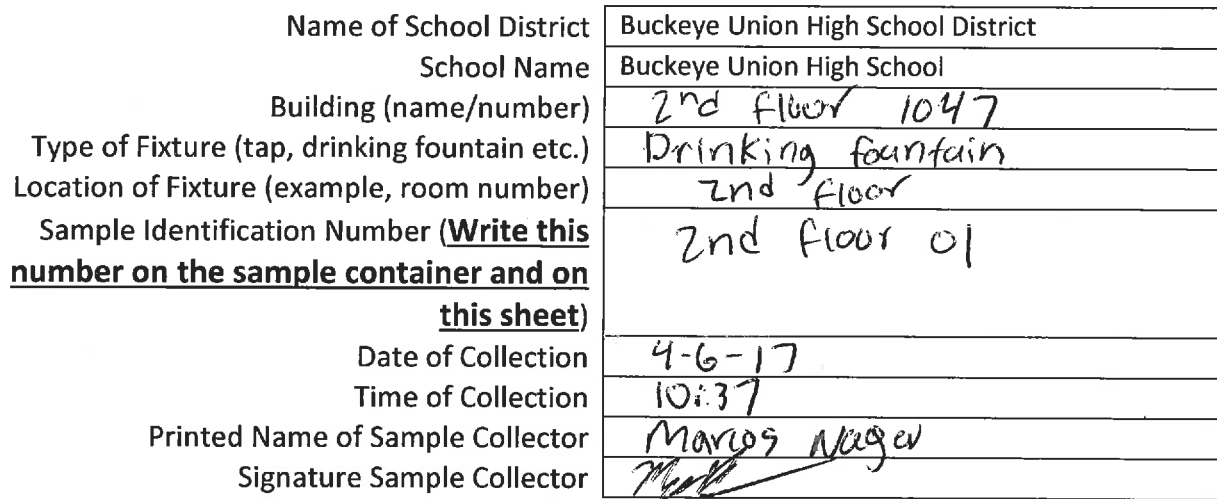 Name of School District Buckeye Union High School District
School Name Buckeye Union High School
Building (name/number) 2nd floor 1047
Type of Fixture (tap, drinking fountain etc.) Drinking fountain
Location of Fixture (example, room number) 2nd floor
Sample Identification Number (Write this 2nd floor 01
number on the sample container and on
this sheet)
Date of Collection 4-6-17
Time of Collection 10:37
Printed Name of Sample Collector Marcos
Signature Sample Collector